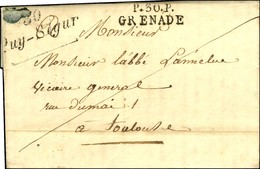 30
Puy-Ségur
P.30.P.
GRENADE
Monsieur
Monsieur l'abbé Lamelue
Vicaire general
rue dumai 1
à Toulouse